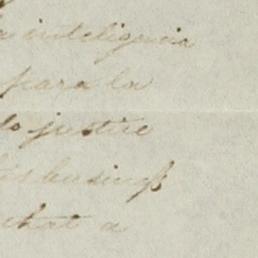 a inteligencia
para la
do justice
his business
that a